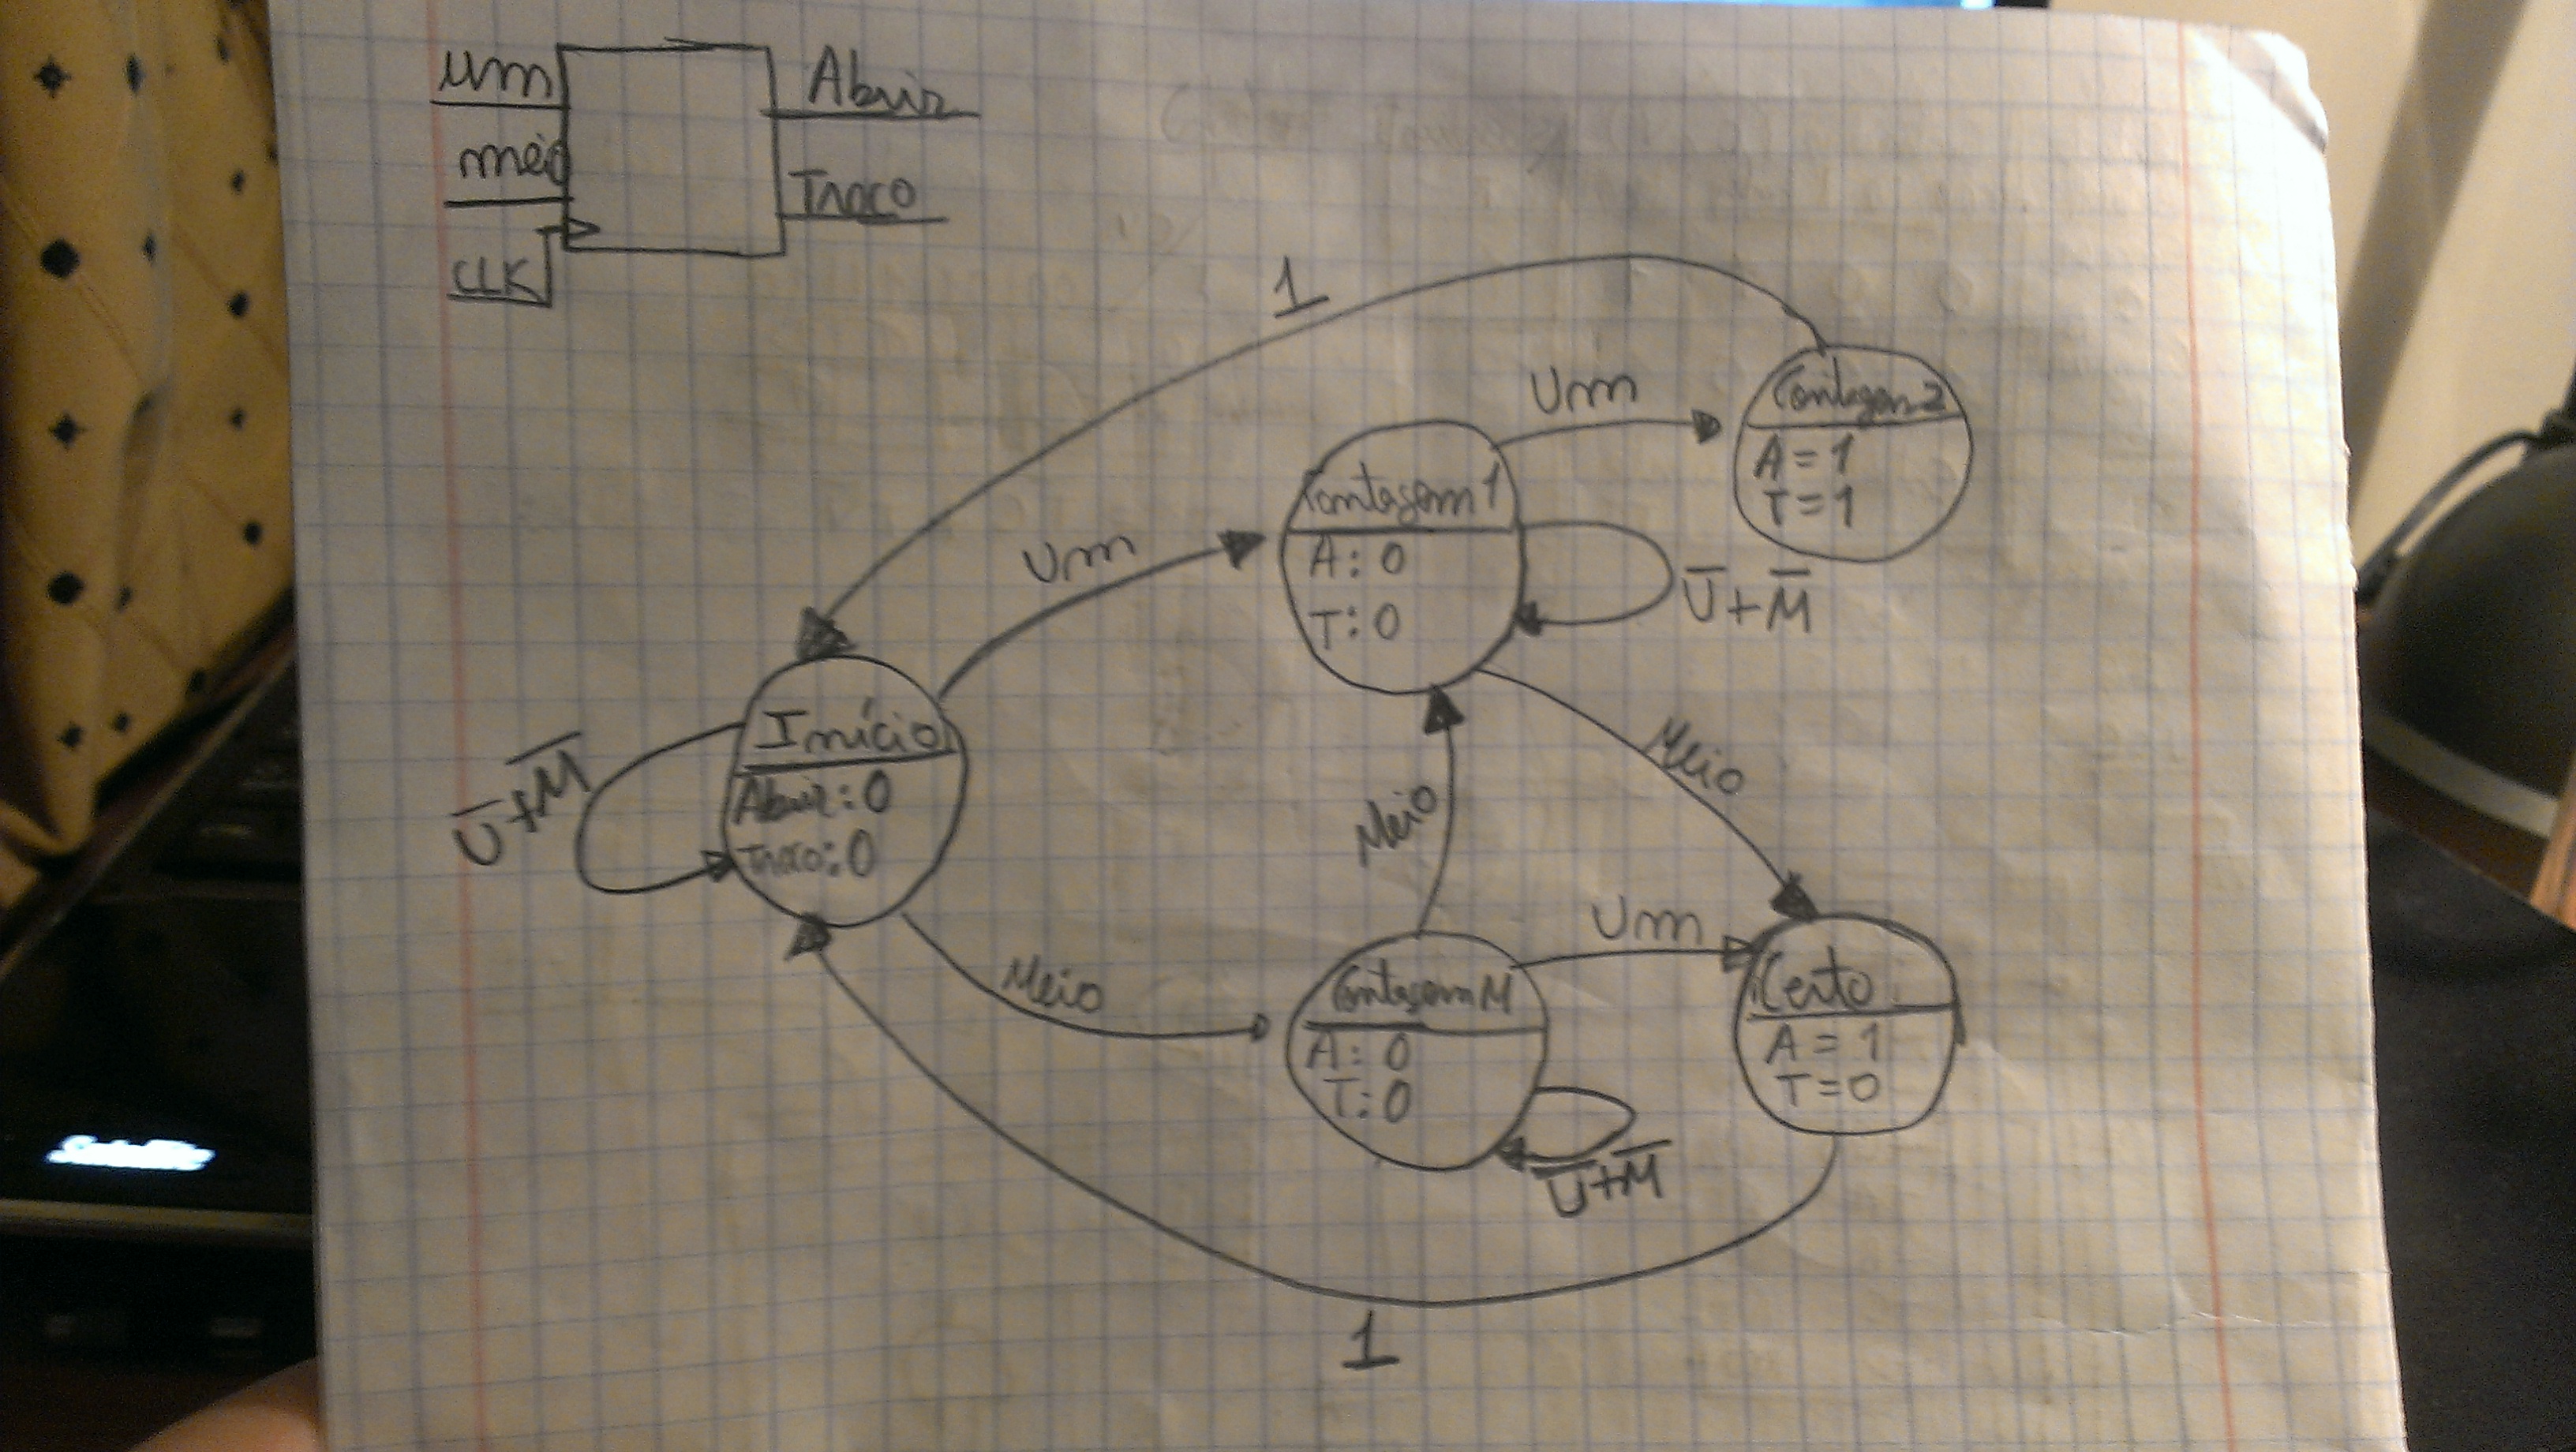 um
meio
CLK
Abrir
Troco
1
Um
Contagem 2
A = 1
T = 1
Um
Contagem 1
A: 0
T: 0
U̅+M̅
Início
Abrir: 0
Troco: 0
U̅+M̅
Meio
Meio
Meio
Um
Contagem M
A: 0
T: 0
U̅+M̅
Certo
A = 1
T = 0
1